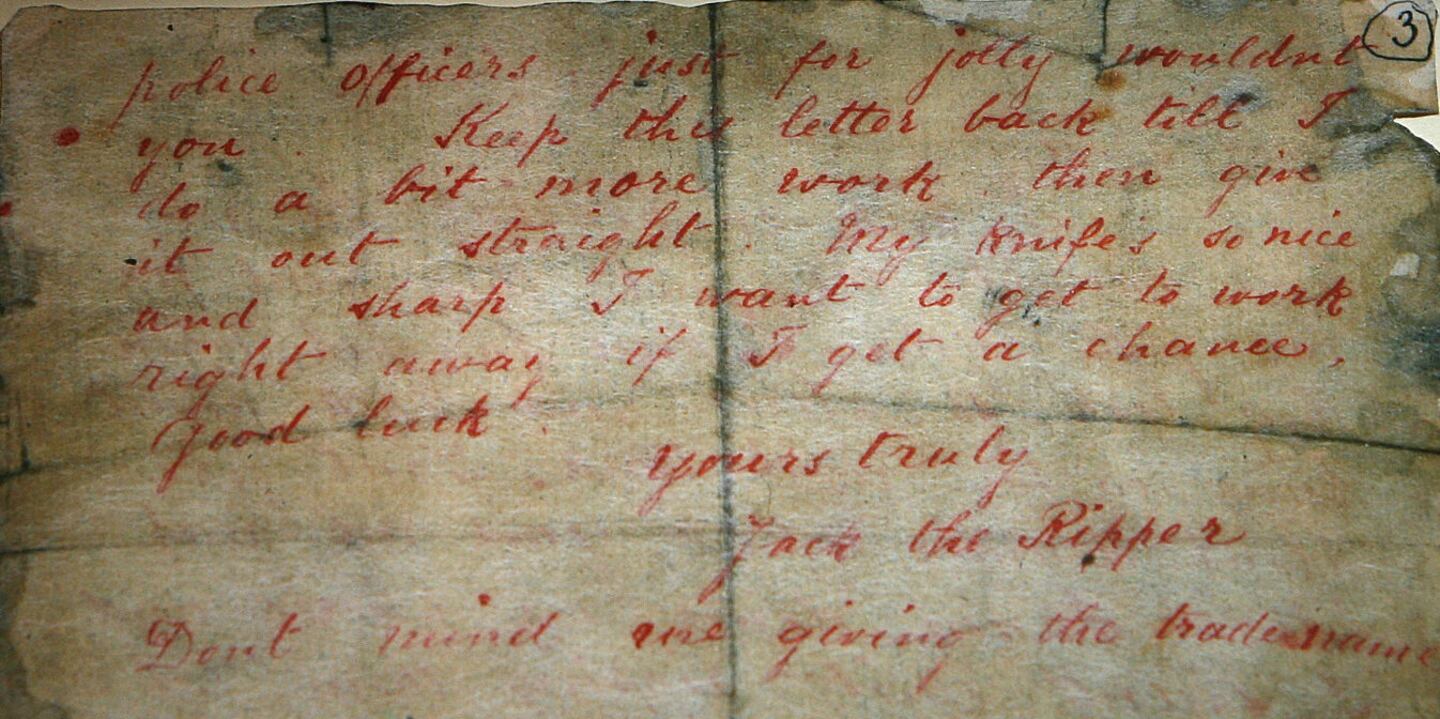 3
police officers just for jolly wouldnt
you. Keep this letter back till I
do a bit more work. then give
it out straight. My knife's so nice
and sharp I want to get to work
right away if I get a chance,
good luck.
yours truly
Jack the Ripper
Dont mind me giving the trade name